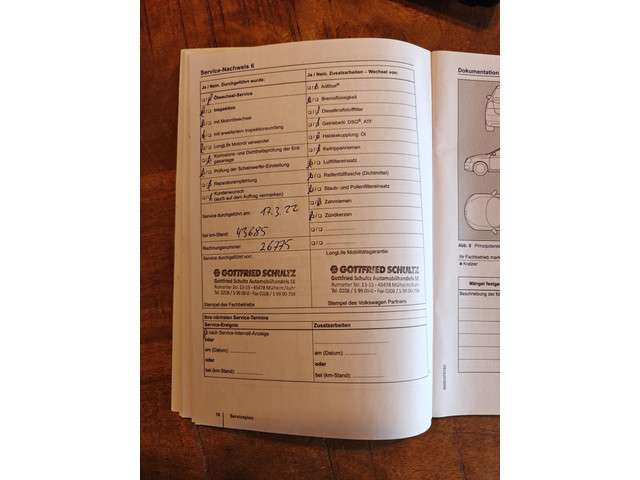 Service-Nachweis 6
Ja / Nein. Durchgeführt wurde:
Ölwechsel-Service
Inspektion
mit Mobilitäts
mit erweitertem Inspektionsumfang
LongLife Motoröl verwendet
Korrosions- und Dichtheitsprüfung der Erd-
gasanlage
Prüfung der Scheinwerfer-Einstellung
Reparaturempfehlung
Kundenwunsch
(auch auf dem Auftrag vermerken)
Service durchgeführt am: 17.3.22
bei km-Stand: 43685
Rechnungsnummer: 26775
GOTTFRIED SCHULTZ
Gottfried Schultz Automobilhandels SE
Stempel des Fachbetriebs
Ja / Nein. Zusatzarbeiten – Wechsel von:
AdBlue®
Bremsflüssigkeit
Dieselkraftstofffilter
Getriebeöl: DSG®, ATF
Haldexkupplung: Öl
Keilrippenriemen
Luftfiltereinsatz
Reifenfüllflasche (Dichtmittel)
Staub- und Pollenfiltereinsatz
Zahnriemen
Zündkerzen
LongLife Mobilitätsgarantie:
GOTTFRIED SCHULTZ
Gottfried Schultz Automobilhandels SE
Stempel des Volkswagen Partners
Ihre nächsten Service-Termine
Service-Ereignis
Zusatzarbeiten
nach Service-Intervall-Anzeige
oder
am (Datum):
oder
bei (km-Stand):
am (Datum):
oder
bei (km-Stand):
Serviceplan
Dokumentation
Abb. 8
Ihr Fachbetrieb
Kratzer
Mängel
Beschreibung der